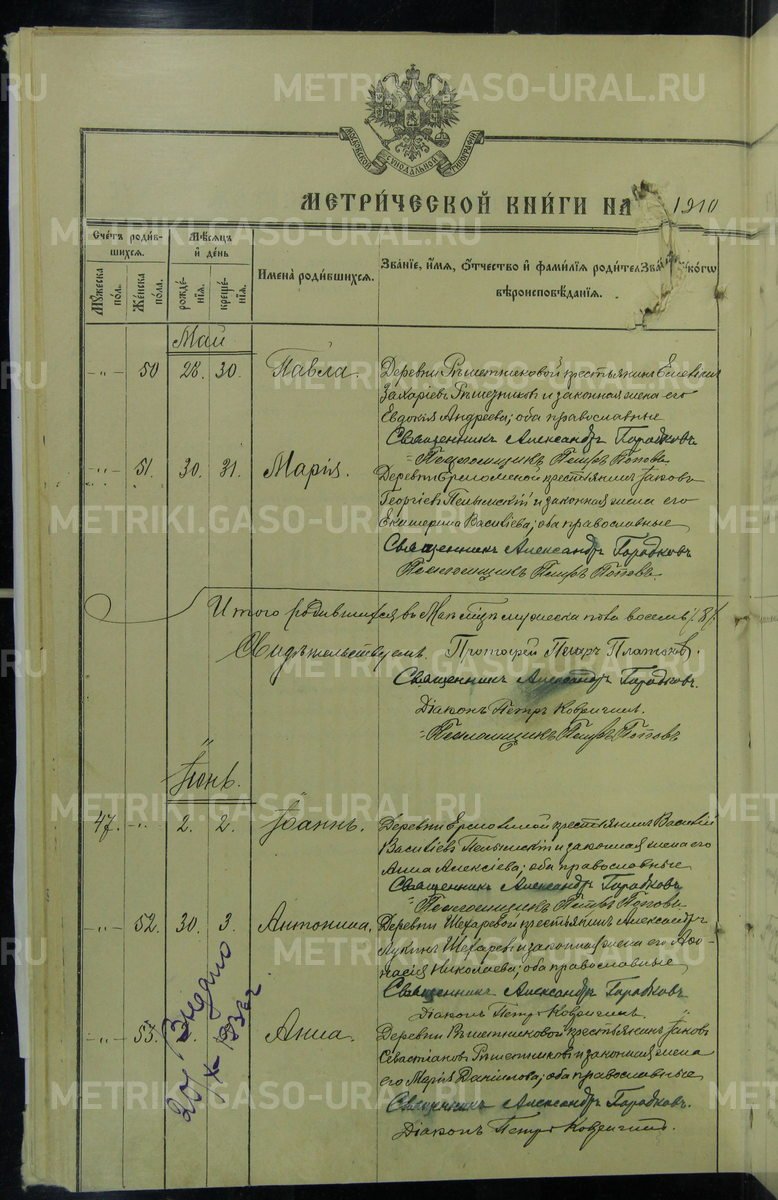 METRIKI.GASO-URAL.RU
МОСКОВСКОЙ СѴНОДАЛЬНОЙ ТИПОГРАФІИ
МЕТРИ́ЧЕСКОЙ КНИ́ГИ НА 1910
Сче́тъ роди́вшихся.
Мѣ́сяцъ и҆ де́нь
Мꙋ́жеска по́л.
Же́нска по́ла.
рожде́нїѧ.
креще́нїѧ.
И҆мена̀ роди́вшихсѧ.
Зва́нїе, и҆́мѧ, ѻ҆́тчество и҆ фами́лїѧ родител
вѣроисповѣ́данїѧ.
Май
-„- 50 28. 30. Павла.
Деревни крестьянин
Захаріевъ и законная жена его
Евдокія Андреева; оба православные
Священникъ Александръ Городковъ
Псаломщикъ Петръ Поповъ
-„- 51. 30. 31. Марія.
Деревни крестьянинъ Іаковъ
Георгіевъ Пелымскій и законная жена его
Екатерина Васильева; оба православные
Священникъ Александръ Городковъ
Псаломщикъ Петръ Поповъ.
Итого родившихся въ Маѣ мцѣ мужеска пола восемь /8/
Свидѣтельствуемъ: Протоіерей Петръ Платоновъ.
Священникъ Александръ Городковъ.
Діаконъ Петръ
Псаломщикъ Петръ Поповъ
Іюнь.
47. -„- 2. 2. Іоаннъ.
Деревни крестьянинъ Василій
Васильевъ Пелымскій и законная жена его
Анна Алексіева; оба православные
Священникъ Александръ Городковъ
Псаломщикъ Петръ Поповъ
-„- 52. 30. 3. Антонина.
Деревни Шехаревой крестьянинъ Александръ
Лукинъ Шехаревъ и законная жена его Аѳа-
насія Николаева; оба православные
Священникъ Александръ Городковъ
Діаконъ Петръ
-„- 53. Анна.
Деревни Рѣшетниковой крестьянинъ Іаковъ
Севастіановъ Рѣшетниковъ и законная жена
его Марія Даніилова; оба православные
Священникъ Александръ Городковъ.
Діаконъ Петръ
Выдано
20/X-1936г.